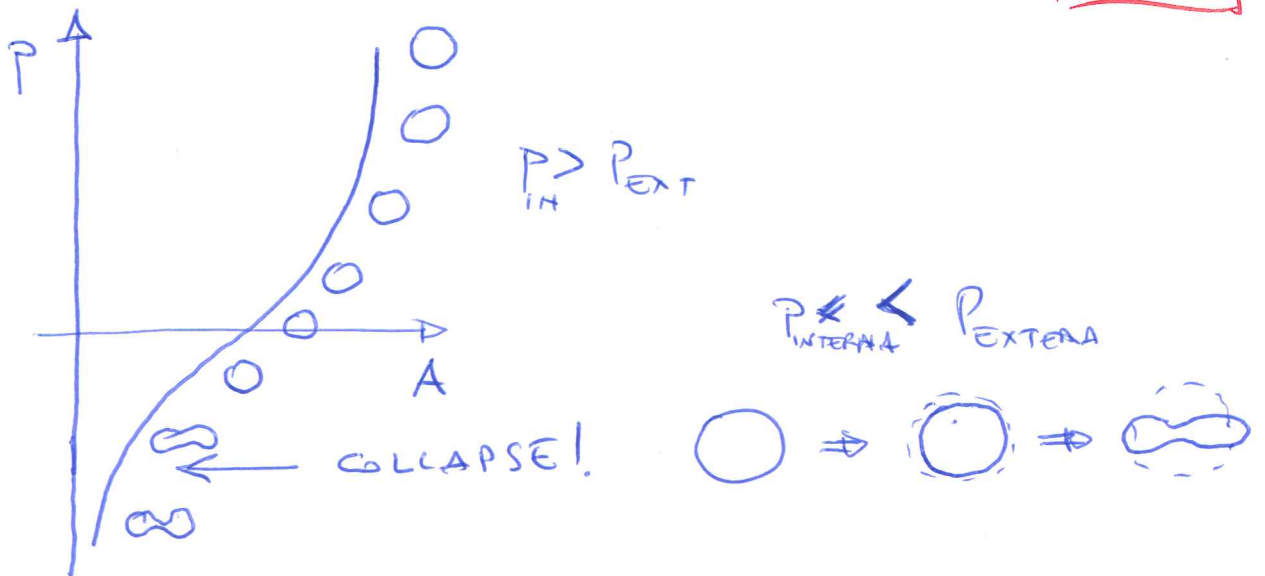 P
P_IN > P_EXT
P_INTERNA < P_EXTERNA
A
COLLAPSE!